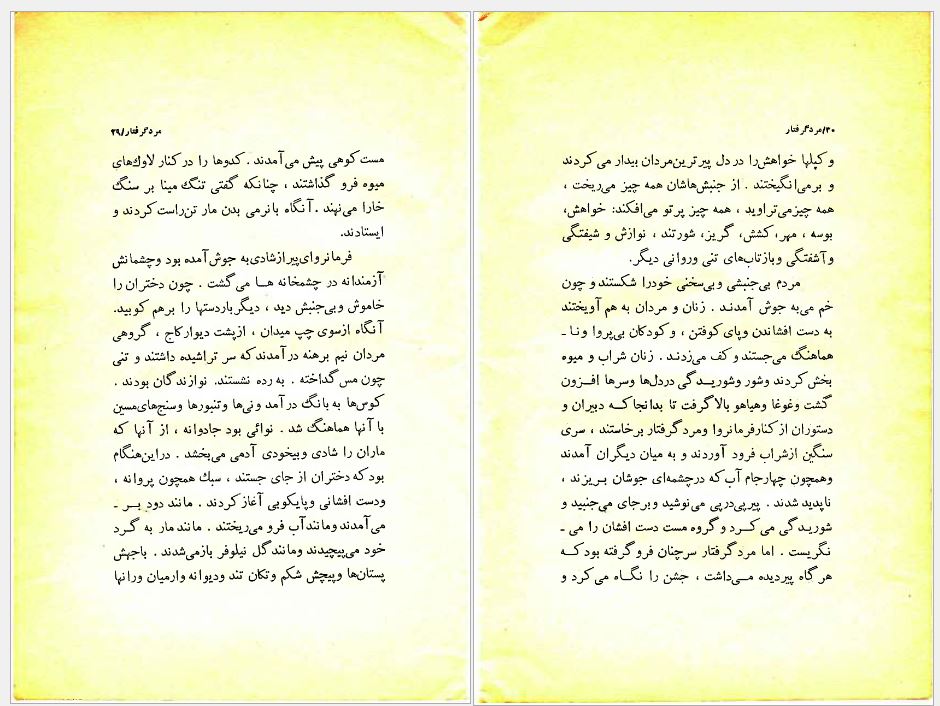 مردگرفتار/۲۹
مست کوهی پیش می‌آمدند . کدوها را در کنار لاوک‌های
میوه فرو گذاشتند ، چنانکه گفتی تنگ مینا بر سنگ
خارا می‌نهند . آنگاه بانرمی بدن مار تن‌راست کردند و
ایستادند.
فرمانروای‌پیر ازشادی به جوش آمده بود وچشمانش
آزمندانه در چشمخانه هـا می گشت . چون دختران را
خاموش و بی‌جنبش دید ، دیگر باردستها را برهم کوبید.
آنگاه ازسوی چپ میدان ، ازپشت دیوار کاج ، گروهی
مردان نیم برهنه در آمدندکه سر تراشیده داشتند و تنی
چون مس گداخته . به رده نشستند. نوازندگان بودند .
کوس‌ها به بانگ در آمد ونی‌ها وتنبورها وسنج‌های‌مسین
با آنها هماهنگ شد . نوائی بود جادوانه ، از آنها که
ماران را شادی وبیخودی آدمی می‌بخشد . دراین‌هنگام
بود که دختران از جای جستند ، سبک همچون پروانه ،
ودست افشانی وپایکوبی آغاز کردند . مانند دود بــر ـ
می‌آمدند ومانند آب فرو می‌ریختند . مانند مار به گـرد
خود می‌پیچیدند ومانند گل نیلوفر بازمی‌شدند . باجهش
پستان‌ها وپیچش شکم وتکان تند ودیوانه وارمیان ورانها
۳۰/مردگرفتار
وکپلها خواهش‌را در دل پیر ترین‌مردان بیدار می کردند
و برمی‌انگیختند . از جنبش‌هاشان همه چیز می‌ریخت ،
همه چیزمی‌تراوید ، همه چیز پرتو می‌افکند: خواهش،
بوسه ، مهر، کشش، گریز، شورتند ، نوازش و شیفتگی
وآشفتگی وبازتاب‌های تنی وروانی دیگر.
مردم بی‌جنبشی وبی‌سخنی خودرا شکستند وچون
خم می‌به جوش آمدنـد . زنان و مردان به هم آویختند
به دست افشاندن وپای کوفتن ، و کودکان بی‌پروا ونـا ـ
هماهنگ می‌جستند وکف می‌زدنـد . زنان شراب و میوه
بخش کردند وشور وشوریــدگی دردل‌ها وسرها افــزون
گشت وغوغا وهیاهو بالا گرفت تا بدانجا کــه دبیران و
دستوران از کنارفرمانروا ومردگرفتار برخاستند ، سری
سنگین ازشراب فرود آوردند و به میان دیگران آمدند
وهمچون چهارجام آب که درچشمه‌ای جوشان بـریزند ،
ناپدید شدند . پیر پی‌درپی می‌نوشید وبرجای می‌جنبید و
شوریـدگی می کــرد وگروه مست دست افشان را می ـ
نگریست . اما مردگرفتار سرچنان فروگرفته بود کــه
هرگاه پیردیده مــی‌داشت ، جشن را نگــاه می‌کرد و